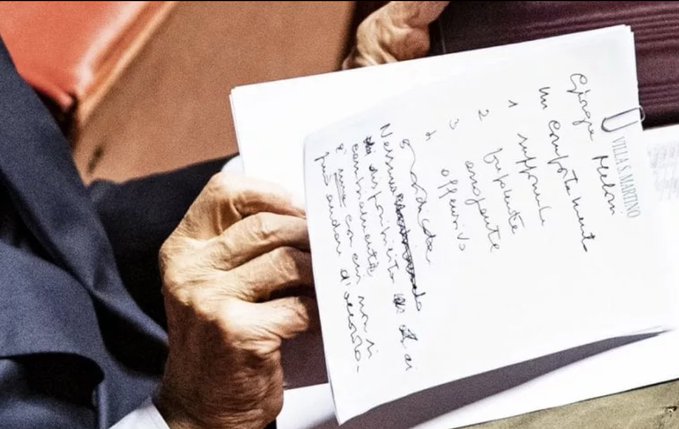 VILLA S. MARTINO
Giorgia Meloni
Un comportamento
1 supponente
2 prepotente
3 arrogante
4 offensivo
ridicola
Nessuna
disponibilità ai
cambiamenti
è una con cui non si
può andare d'accordo.